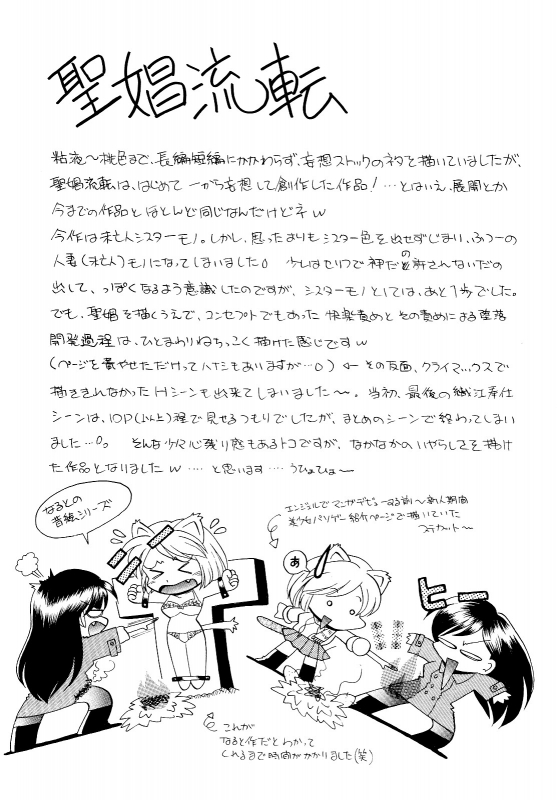 聖娼流転
粘夜～桃色まで、長編短編にかかわらず、妄想ストックのネタを描いていましたが、
聖娼流転は、はじめて一から妄想して創作した作品！…とはいえ、展開とか
今までの作品とほとんど同じなんだけどネw
今作は未亡人シスターモノ。しかし、思ったよりもシスター色を出せずじまい、ふつーの
人妻(未亡人)モノになってしまいました。少しはセリフで神だの許されないだの
出して、っぽくなるよう意識したのですが、シスターモノとしては、あと1歩でした。
でも、聖娼を描くうえで、コンセプトでもあった快楽責めとその責めによる堕落
開発過程は、ひとまわりねちっこく描けた感じですw
(ページを費やせただけってハナシもありますが…。) ← その反面、クライマックスで
描ききれなかったHシーンも出来てしまいました～。当初、最後の織江奉仕
シーンは、10P(以上)程で見せるつもりでしたが、まとめのシーンで終わってしまい
ました…。 そんな少々心残り感もあるトコですが、なかなかのいやらしさを描け
た作品となりましたw…と思います…。うひょひょ～
なるとの
昔絵シリーズ
エンジェルでマンガデビューする前～新人期間
美少女バリデー紹介ページで描いていた
ステカット～
あ
ヒー
これが
なると作だとわかって
くれるまで時間がかかりました(笑)